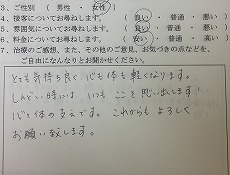 3、ご性別 ( 男性 ・ 女性 )
4、接客についてお尋ねします。 ( 良い ・ 普通 ・ 悪い )
5、雰囲気についてお尋ねします。 ( 良い ・ 普通 ・ 悪い )
6、料金についてお尋ねします。 ( 安い ・ 普通 ・ 高い )
7、治療のご感想、また、その他のご意見、お気づきの点などを、
ご自由になんなりとお聞かせください。
とても気持ち良く心も体も軽くなります。
しんどい時には いつも ここを思い出します!
心と体の支えです。これからもよろしく
お願い致します。